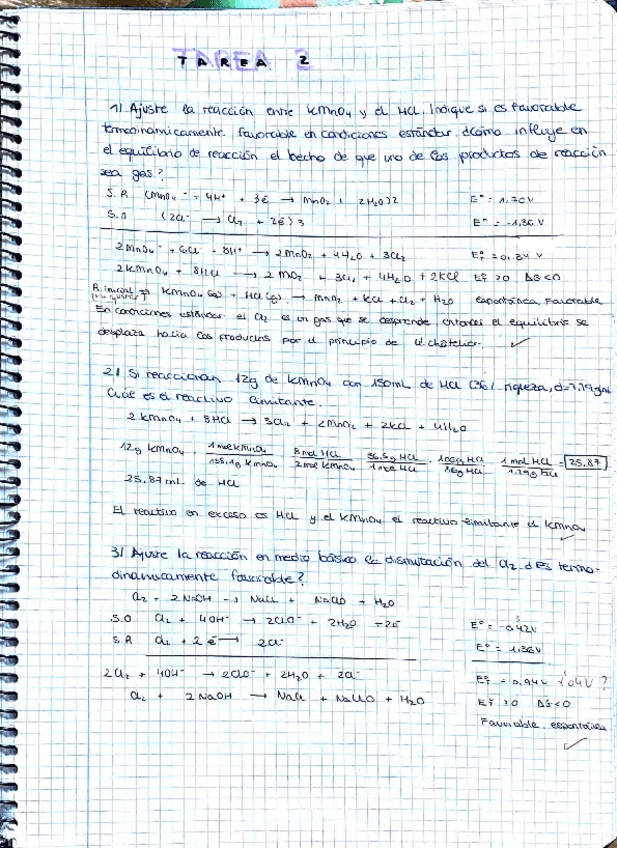 TAREA 2
1) Ajuste la reacción entre KMnO4 y el HCl. Indique si es favorable
termodinamicamente favorable en condiciones estándar. ¿Cómo influye en
el equilibrio de reacción el hecho de que uno de los productos de reacción
sea gas?
S.R (MnO4- + 4H+ + 3e- → MnO2 + 2H2O)2 E° = 1.70V
S.O (2Cl- → Cl2 + 2e-)3 E° = -1.36V
2MnO4- + 6Cl- + 8H+ → 2MnO2 + 4H2O + 3Cl2 E°T = 0.34 V
2KMnO4 + 8HCl → 2MO2 + 3Cl2 + 4H2O + 2KCl E°T >0 ΔG<0
R. inicial ⇒ KMnO4 + HCl → MnO2 + KCl + Cl2 + H2O espontánea, Favorable
En condiciones estándar el Cl2 es un gas que se desprende entonces el equilibrio se
desplaza hacia los productos por el principio de châtelier.
2) Si reaccionan 12g de KMnO4 con 150mL de HCl (36% riqueza, d=1.19g/ml
Cuál es el reactivo limitante.
2KMnO4 + 8HCl → 3Cl2 + 2MnO2 + 2KCl + 4H2O
12g KMnO4 · 1mol KMnO4 / g KMnO4 · 8mol HCl / 2mol KMnO4 · 36.5g HCl / 1mol HCl · 100g HCl / 36g HCl · 1mol HCl / 1.19g HCl = 25.87
25.87mL de HCl
El reactivo en exceso es HCl y el KMnO4 el reactivo limitante el KMnO4
3) Ajuste la reacción en medio básico de dismutación del Cl2. ¿Es termo-
dinamicamente favorable?
Cl2 + 2NaOH → NaCl + NaClO + H2O
S.O Cl2 + 4OH- → 2ClO- + 2H2O + 2e- E° = -0.42V
S.R Cl2 + 2e- → 2Cl- E° = 1.36V
2Cl2 + 4OH- → 2ClO- + 2H2O + 2Cl- E°T = 0.94V 1'04V?
Cl2 + 2NaOH → NaCl + NaClO + H2O E°T >0 ΔG<0
Favorable, espontánea